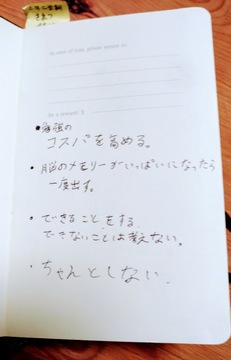 In case of loss, please return to:
As a reward: $
・勉強の
コスパを高める。
・脳のメモリーがいっぱいになったら
一度出す。
・できることをする
できないことは考えない。
・ちゃんとしない